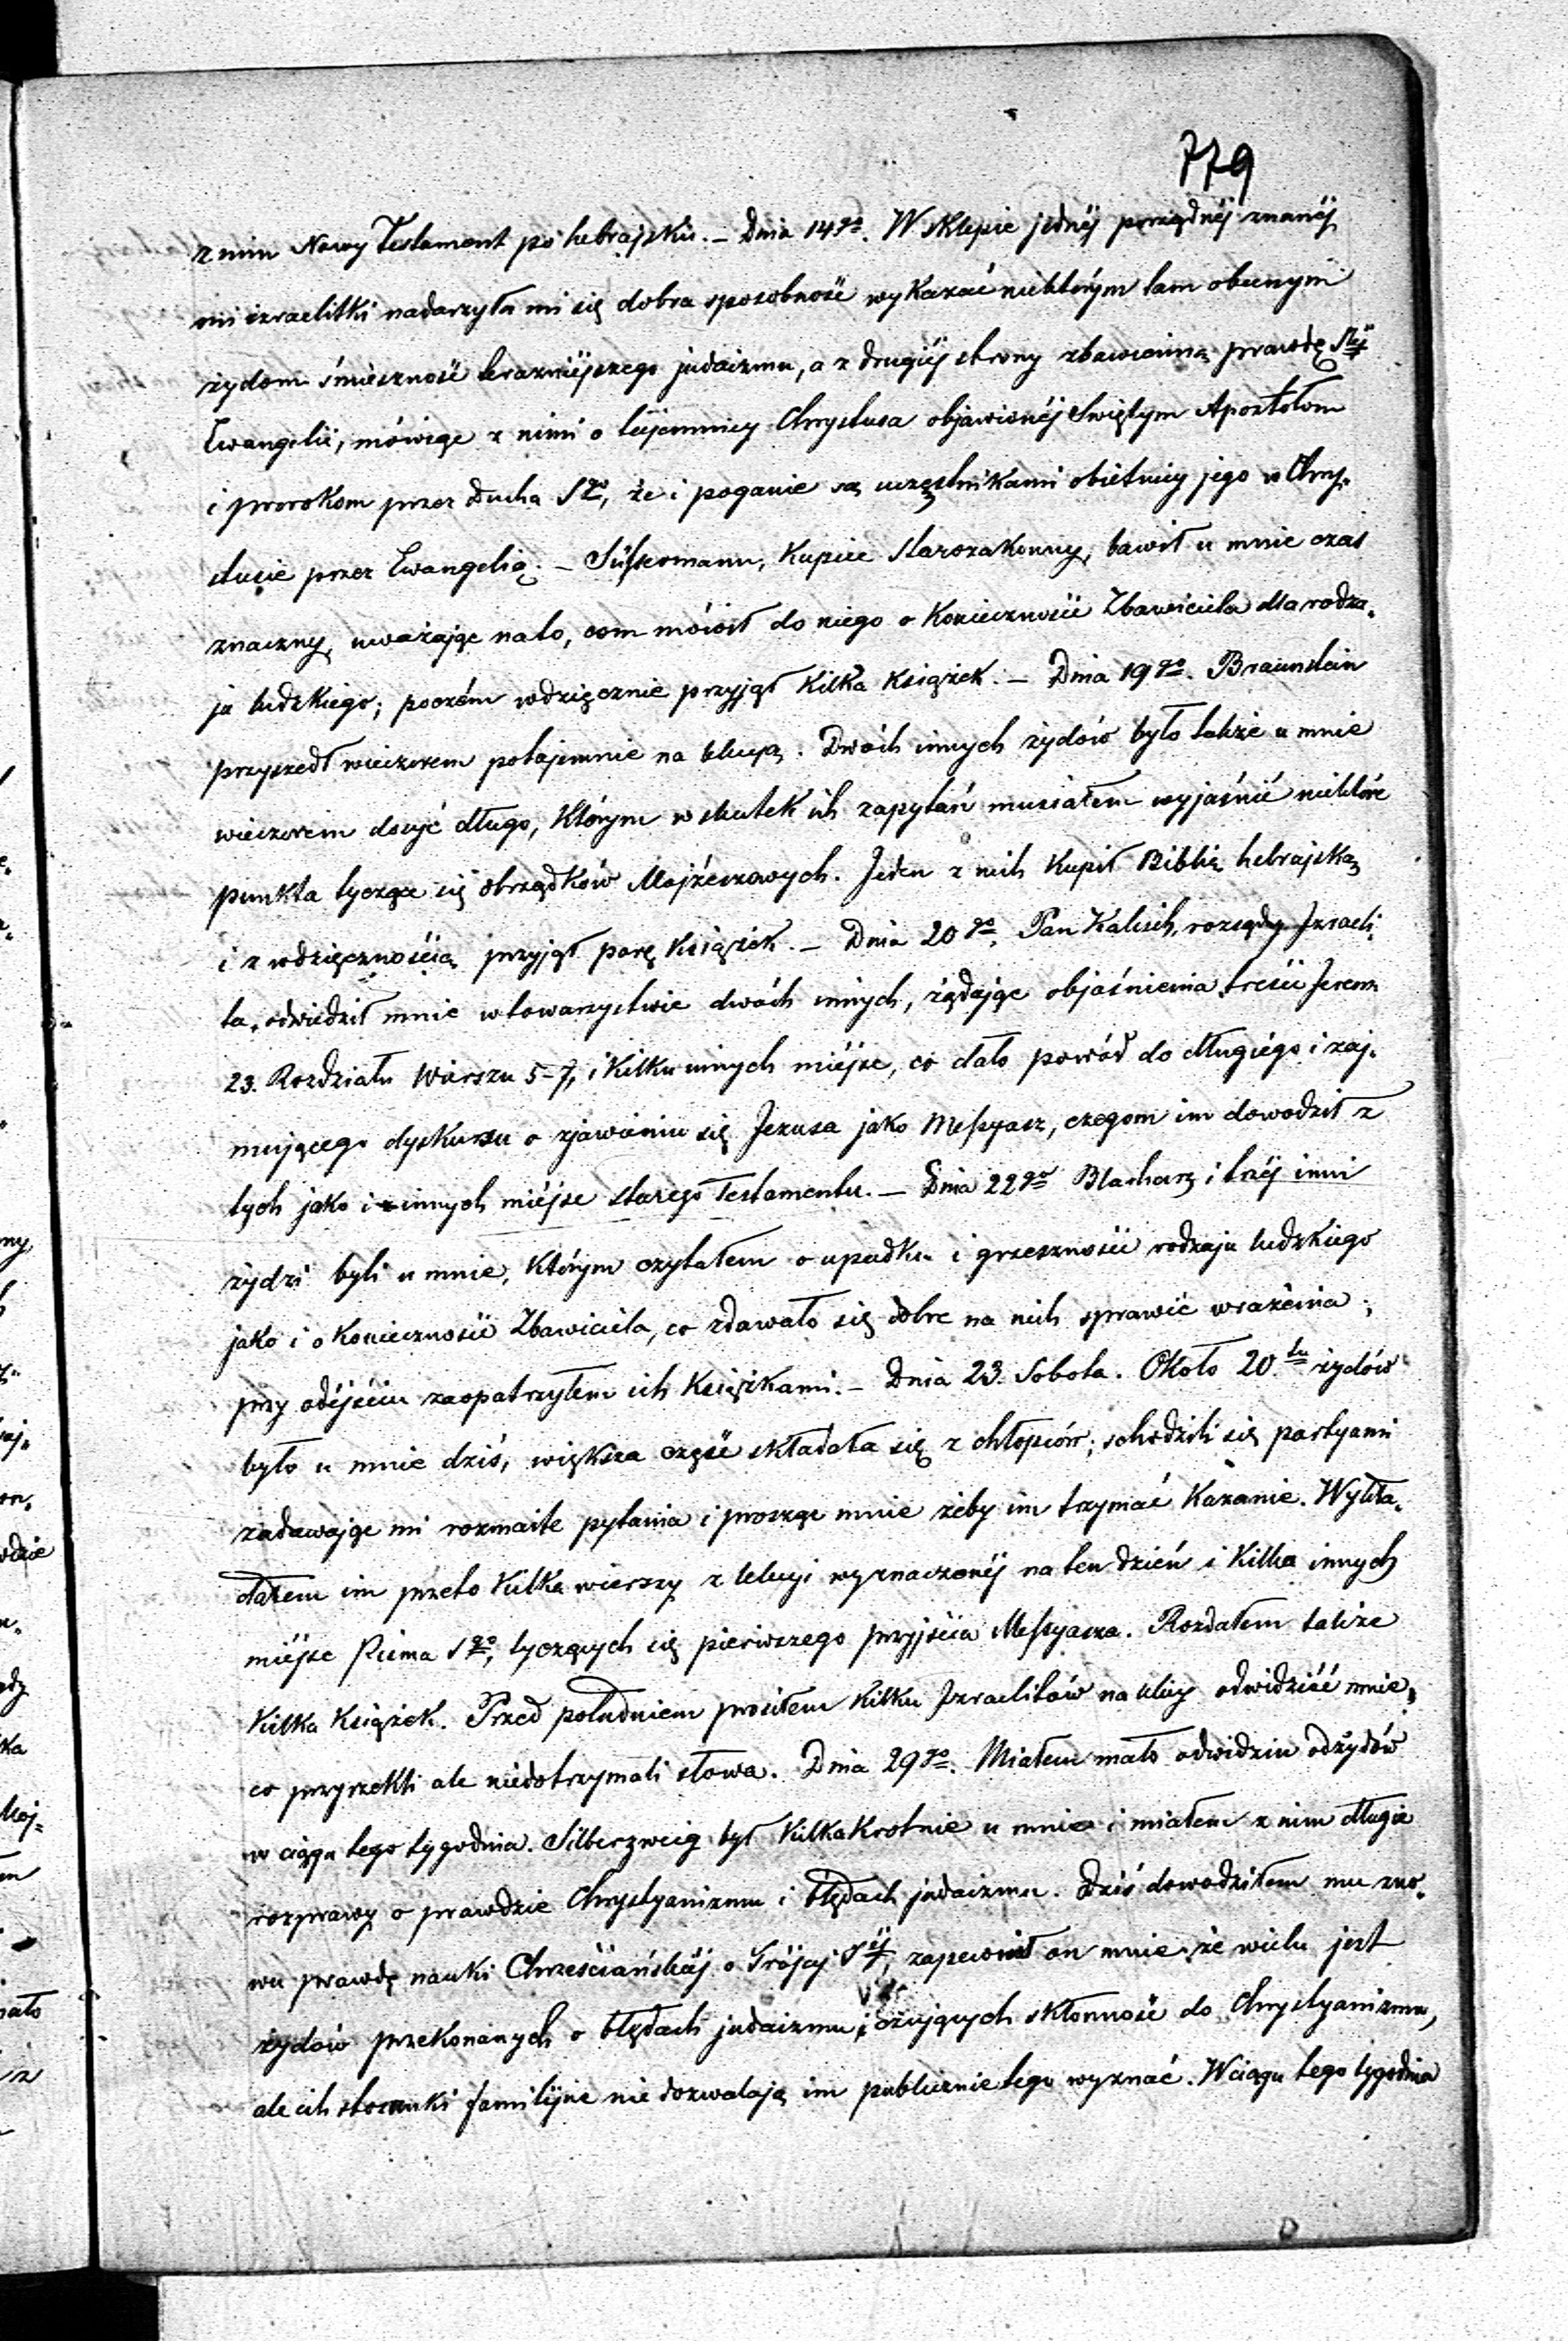 779
z nim Nowy Testament po hebrajsku. – Dnia 14go. W sklepie jednéj porządnéj znanéj
mi izraelitki nadarzyła mi się dobra sposobność wykazać niektórym tam obecnym
żydom śmieszność teraźniéjszego judaizmu, a z drugiéj strony zbawienną prawdę Stéj
Ewangelii, mówiąc z nimi o tajemnicy Chrystusa objawionéj Swiętym Apostołom
i prorokom przez Ducha Sgo, że i poganie są uczęstnikami obietnicy jego w Chry-
stusie przez Ewangelią. – Süssermann, Kupiec Starozakonny, bawił u mnie czas
znaczny, uważając na to, com mówił do niego o Konieczności Zbawiciela dla rodza-
ju ludzkiego; poczém wdzięcznie przyjął kilka książek. – Dnia 19go. Braunstein
przyszedł wieczorem potajemnie na lekcyą. Dwóch innych żydów było także u mnie
wieczorem dosyć długo, którym w skutek ich zapytań musiałem wyjaśnić niektóre
punkta tyczące się obrządków Mojżeszowych. Jeden z nich kupił Biblią hebrajską
i z wdzięcznością przyjął parę książek. – Dnia 20go. Pan Kalisch, rozsądny Izraeli-
ta, odwiedził mnie w towarzystwie dwóch innych, żądając objaśnienia treści Jerem
23. Rozdziału Wiérszu 5–7, i kilku innych miéjsc, co dało powód do długiégo i zaj-
mującego dyskursu o zjawieniu się Jezusa jako Messyasz, czegom im dowodził z
tych jako i innych miéjsc starego Testamentu. – Dnia 22go Blacharz i trzéj inni
żydzi byli u mnie, którym czytałem o upadku i grzeszności rodzaju ludzkiego
jako i o Konieczności Zbawiciela, co zdawało się dobre na nich sprawić wrażenia;
przy odéjściu zaopatrzyłem ich książkami. – Dnia 23. Sobota. Około 20tu żydów
było u mnie dziś, większa część składała się z chłopców; schodzili się partyami
zadawając mi rozmaite pytania i prosząc mnie żeby im trzymać Kazanie. Wykła-
dałem im przeto kilka wierszy z lekcyi wyznaczonéj na ten dzień i kilka innych
miéjsc Pisma Sgo, tyczących się pierwszego przyjścia Messyasza. Rozdałem także
kilka książek. Przed południem prosiłem kilku Izraelitów na ulicy odwidzić mnie,
co przyrzekli ale niedotrzymali słowa. Dnia 29go. Miałem mało odwidzin od żydów
w ciągu tego tygodnia. Silberzweig był kilkakrotnie u mnie i miałem z nim długie
rozprawy o prawdzie Chrystyanizmu i błędach judaizmu. Dziś dowodziłem mu zno-
wu prawdę nauki Chrześciańskiéj o Trójcy Séj, zapewnił on mnie, że wielu jest
żydów przekonanych o błędach judaizmu, i czujących skłonność do Chrystyanizmu,
ale ich stosunki familijne nie dozwalają im publicznie tego wyznać. W ciągu tego tygodnia